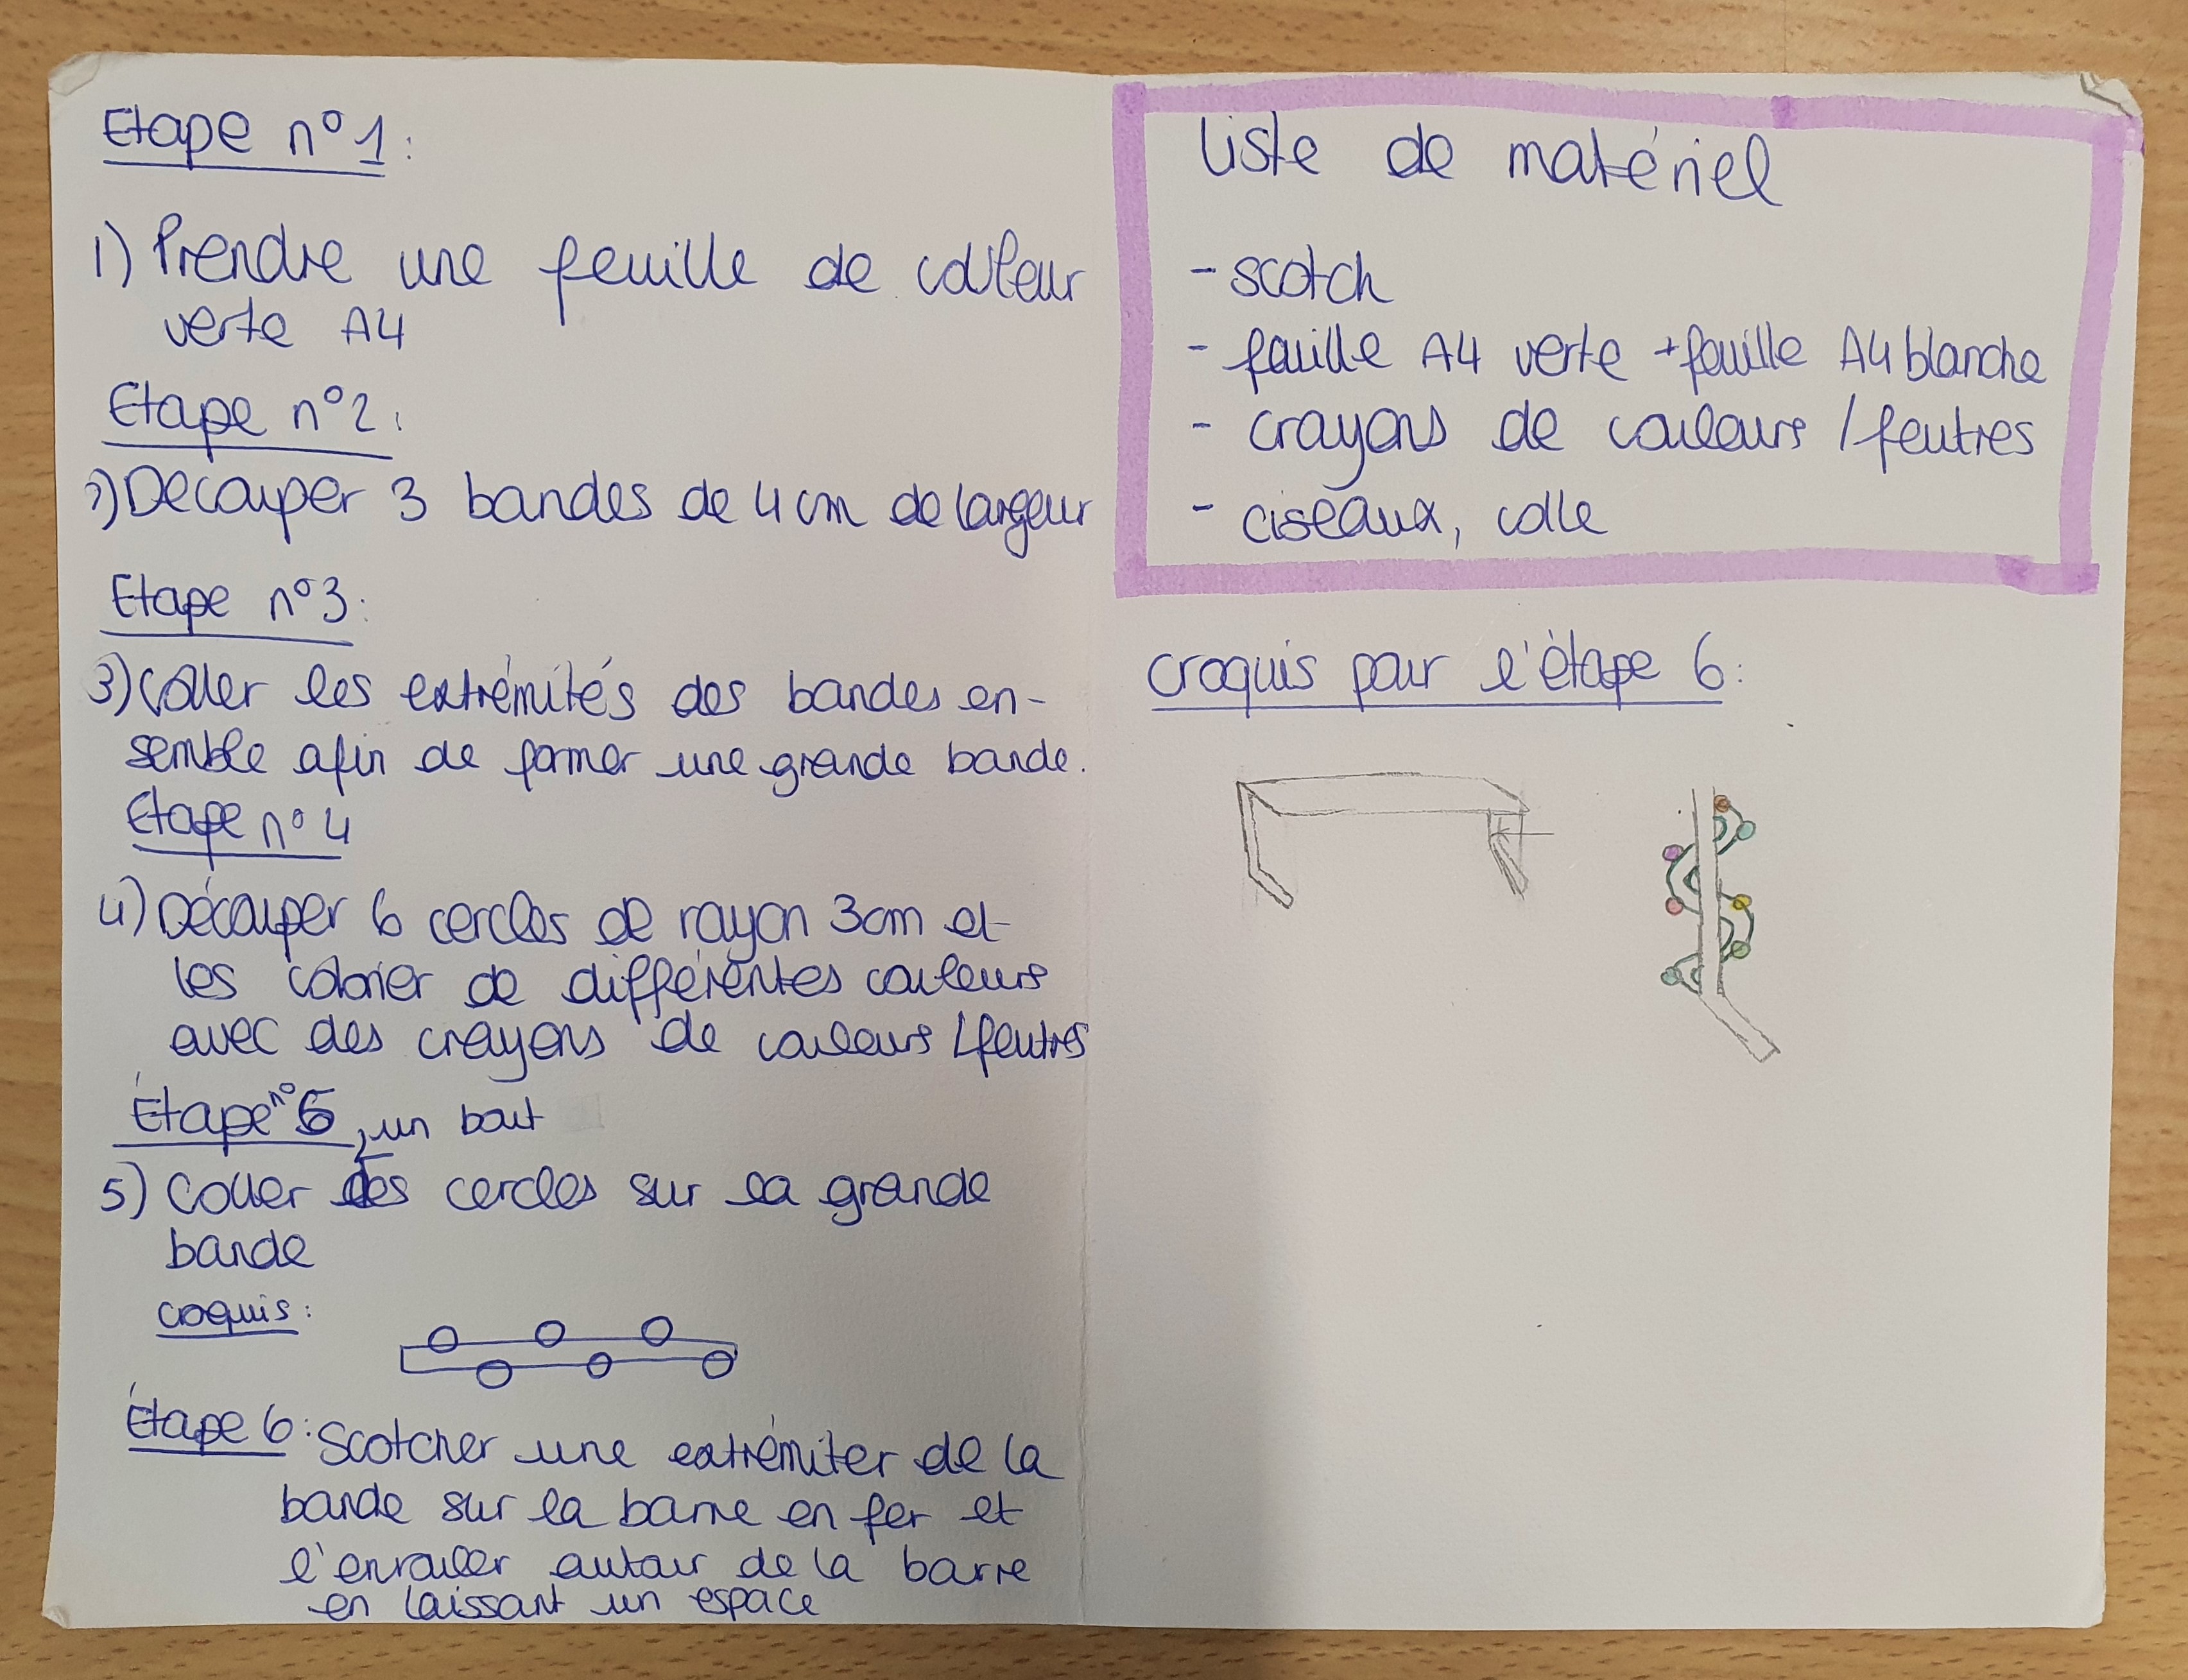 Etape n°1:
1) Prendre une feuille de couleur
verte A4
Etape n°2:
2) Decouper 3 bandes de 4 cm de largeur
Etape n°3:
3) Coller les extrémités des bandes en-
semble afin de former une grande bande.
Etape n°4
4) Découper 6 cercles de rayon 3cm et
les colorier de différentes couleurs
avec des crayons de couleurs / feutres
Étape n°5
, un bout
5) Coller des cercles sur la grande
bande
croquis:
Étape 6: Scotcher une extrémiter de la
bande sur la barre en fer et
l'enrouler autour de la barre
en laissant un espace
Liste de matériel
- scotch
- feuille A4 verte + feuille A4 blanche
- crayons de couleurs / feutres
- ciseaux, colle
croquis pour l'étape 6: